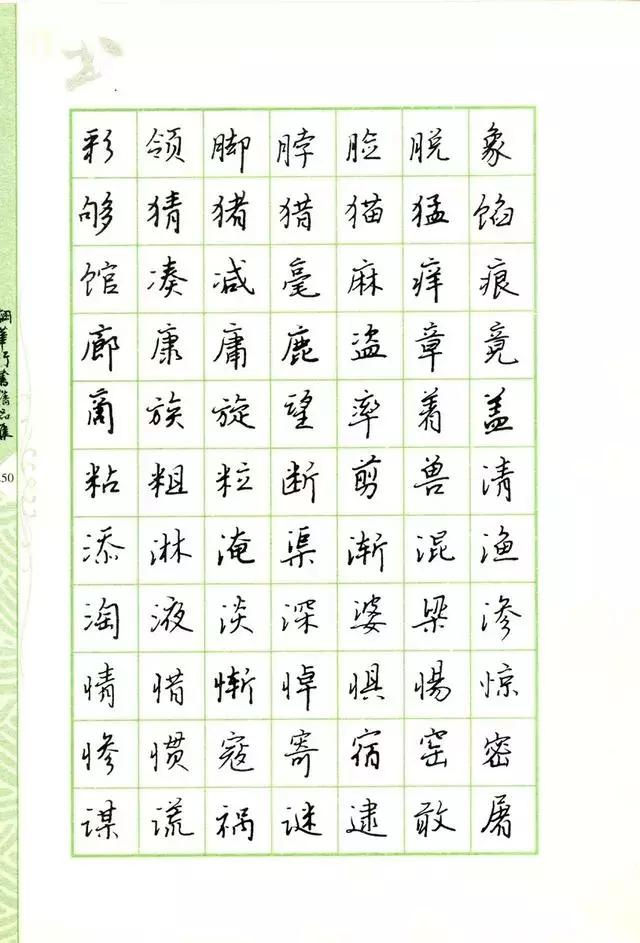 彩 领 脚 脖 脸 脱 象
够 猜 猪 猎 猫 猛 馅
馆 凑 减 毫 麻 痒 痕
廊 康 庸 鹿 盗 章 竟
商 族 旋 望 率 着 盖
粘 粗 粒 断 剪 兽 清
添 淋 淹 渠 渐 混 渔
淘 液 淡 深 婆 梁 渗
情 惜 惭 悼 惧 惕 惊
惨 惯 寇 寄 宿 窑 密
谋 谎 祸 谜 逮 敢 屠
50